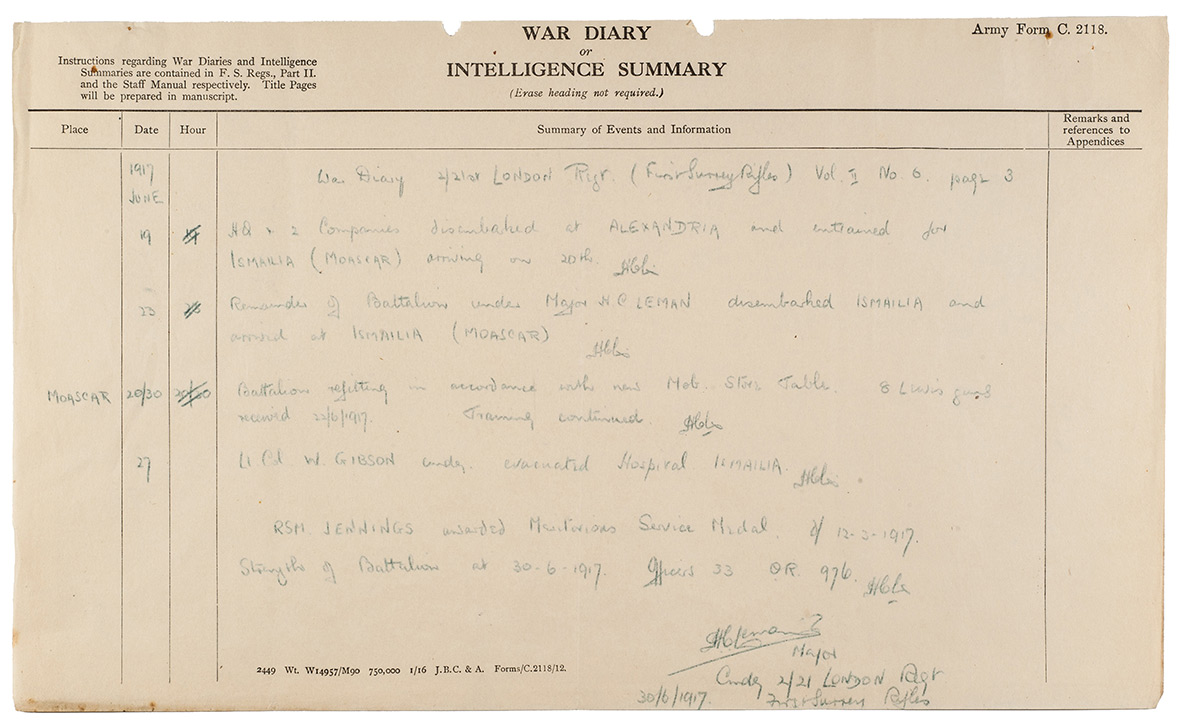 WAR DIARY
or
INTELLIGENCE SUMMARY
(Erase heading not required.)
Army Form C. 2118.
Instructions regarding War Diaries and Intelligence
Summaries are contained in F. S. Regs., Part II.
and the Staff Manual respectively. Title Pages
will be prepared in manuscript.
Place Date Hour Summary of Events and Information Remarks and references to Appendices
1917
JUNE
War Diary 2/21st LONDON Regt. (First Surrey Rifles) Vol. II No. 6. page 3
19 HQ & 2 Companies disembarked at ALEXANDRIA and entrained for
ISMAILIA (MOASCAR) arriving on 20th.
23 Remainder of Battalion under Major H C LEMAN disembarked ISMAILIA and
arrived at ISMAILIA (MOASCAR)
MOASCAR 20/30 Battalion refitting in accordance with new Mob. Store Table. 8 Lewis guns
received 22/6/1917. Training continued.
27 Lt Col W. GIBSON cmdg. evacuated Hospital ISMAILIA.
RSM. JENNINGS awarded Meritorious Service Medal. d/ 12-3-1917.
Strength of Battalion at 30-6-1917. Officers 33 OR. 976.
HCLeman
Major
Cmdg 2/21 LONDON Regt
30/6/1917. First Surrey Rifles
2449 Wt. W14957/M90 750,000 1/16 J.B.C. & A. Forms/C.2118/12.